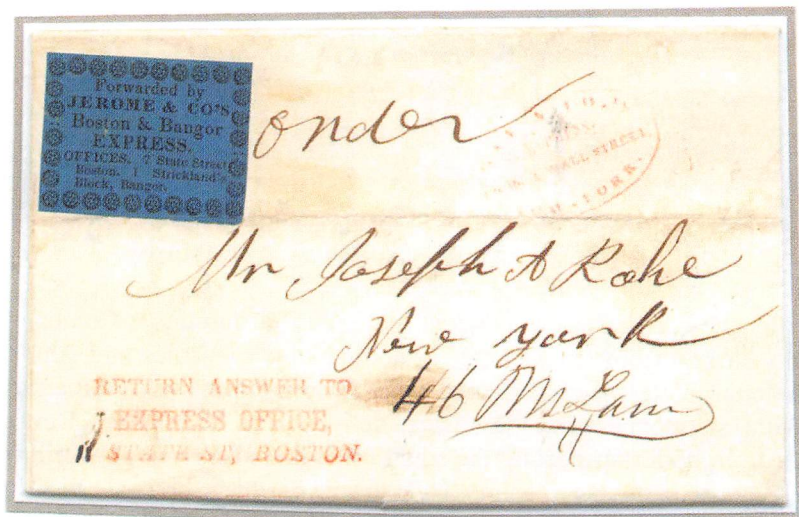 Forwarded by
JEROME & CO'S
Boston & Bangor
EXPRESS.
OFFICES. 7 State Street
Boston. 1 Strickland's
Block, Bangor.
WALL STREET,
YORK.
Mr Joseph A Rohe
New York
46
RETURN ANSWER TO
EXPRESS OFFICE,
STATE ST, BOSTON.